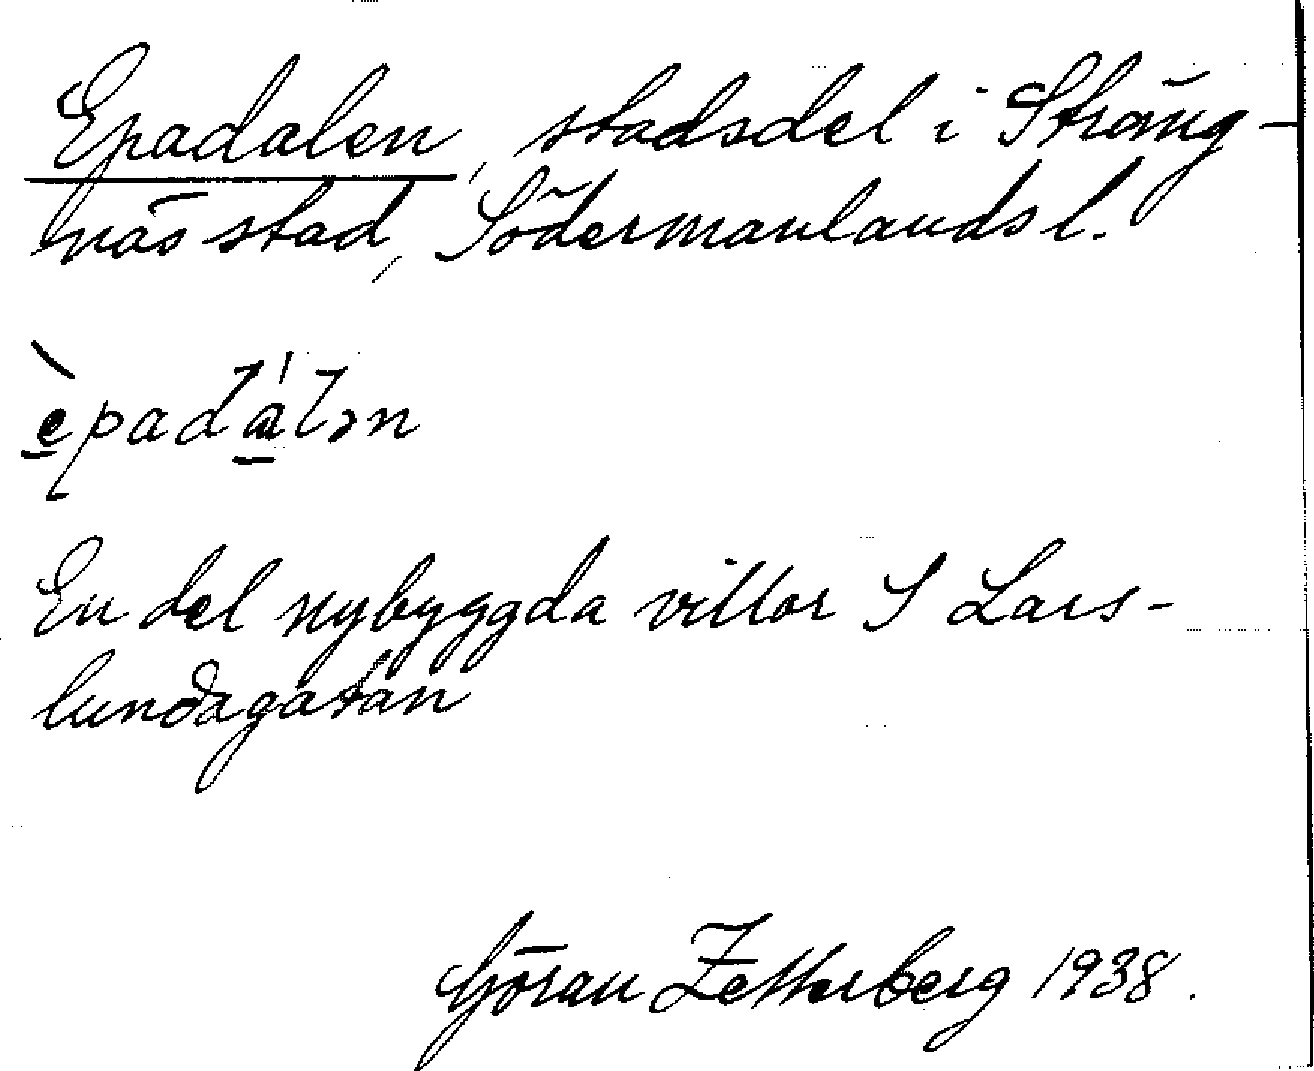 Epadalen, stadsdel i Sträng-
näs stad, Södermanlands l.
èpadálən
En del nybyggda villor S Lars-
lundagatan
Göran Zetterberg 1938.